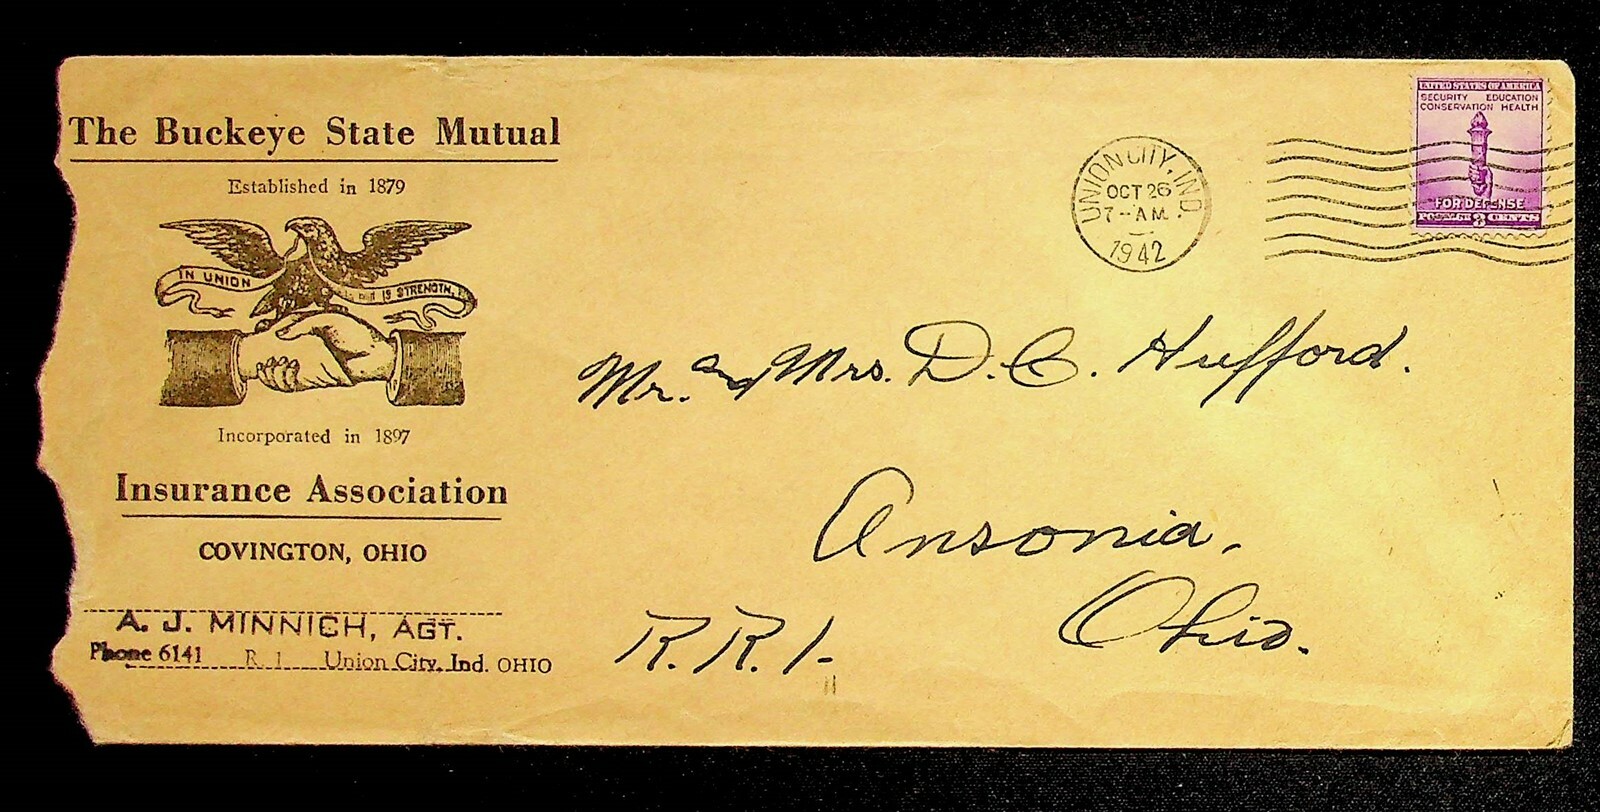 The Buckeye State Mutual
Established in 1879
IN UNION IS STRENGTH.
Incorporated in 1897
Insurance Association
COVINGTON, OHIO
A. J. MINNICH, AGT.
Phone 6141 R. 1 Union City, Ind. OHIO
UNION CITY, IND.
OCT 26
7-AM
1942
UNITED STATES OF AMERICA
SECURITY EDUCATION
CONSERVATION HEALTH
FOR DEFENSE
POSTAGE 3 CENTS
Mr. and Mrs. D. C. Hufford.
Ansonia,
Ohio.
R. R. 1-